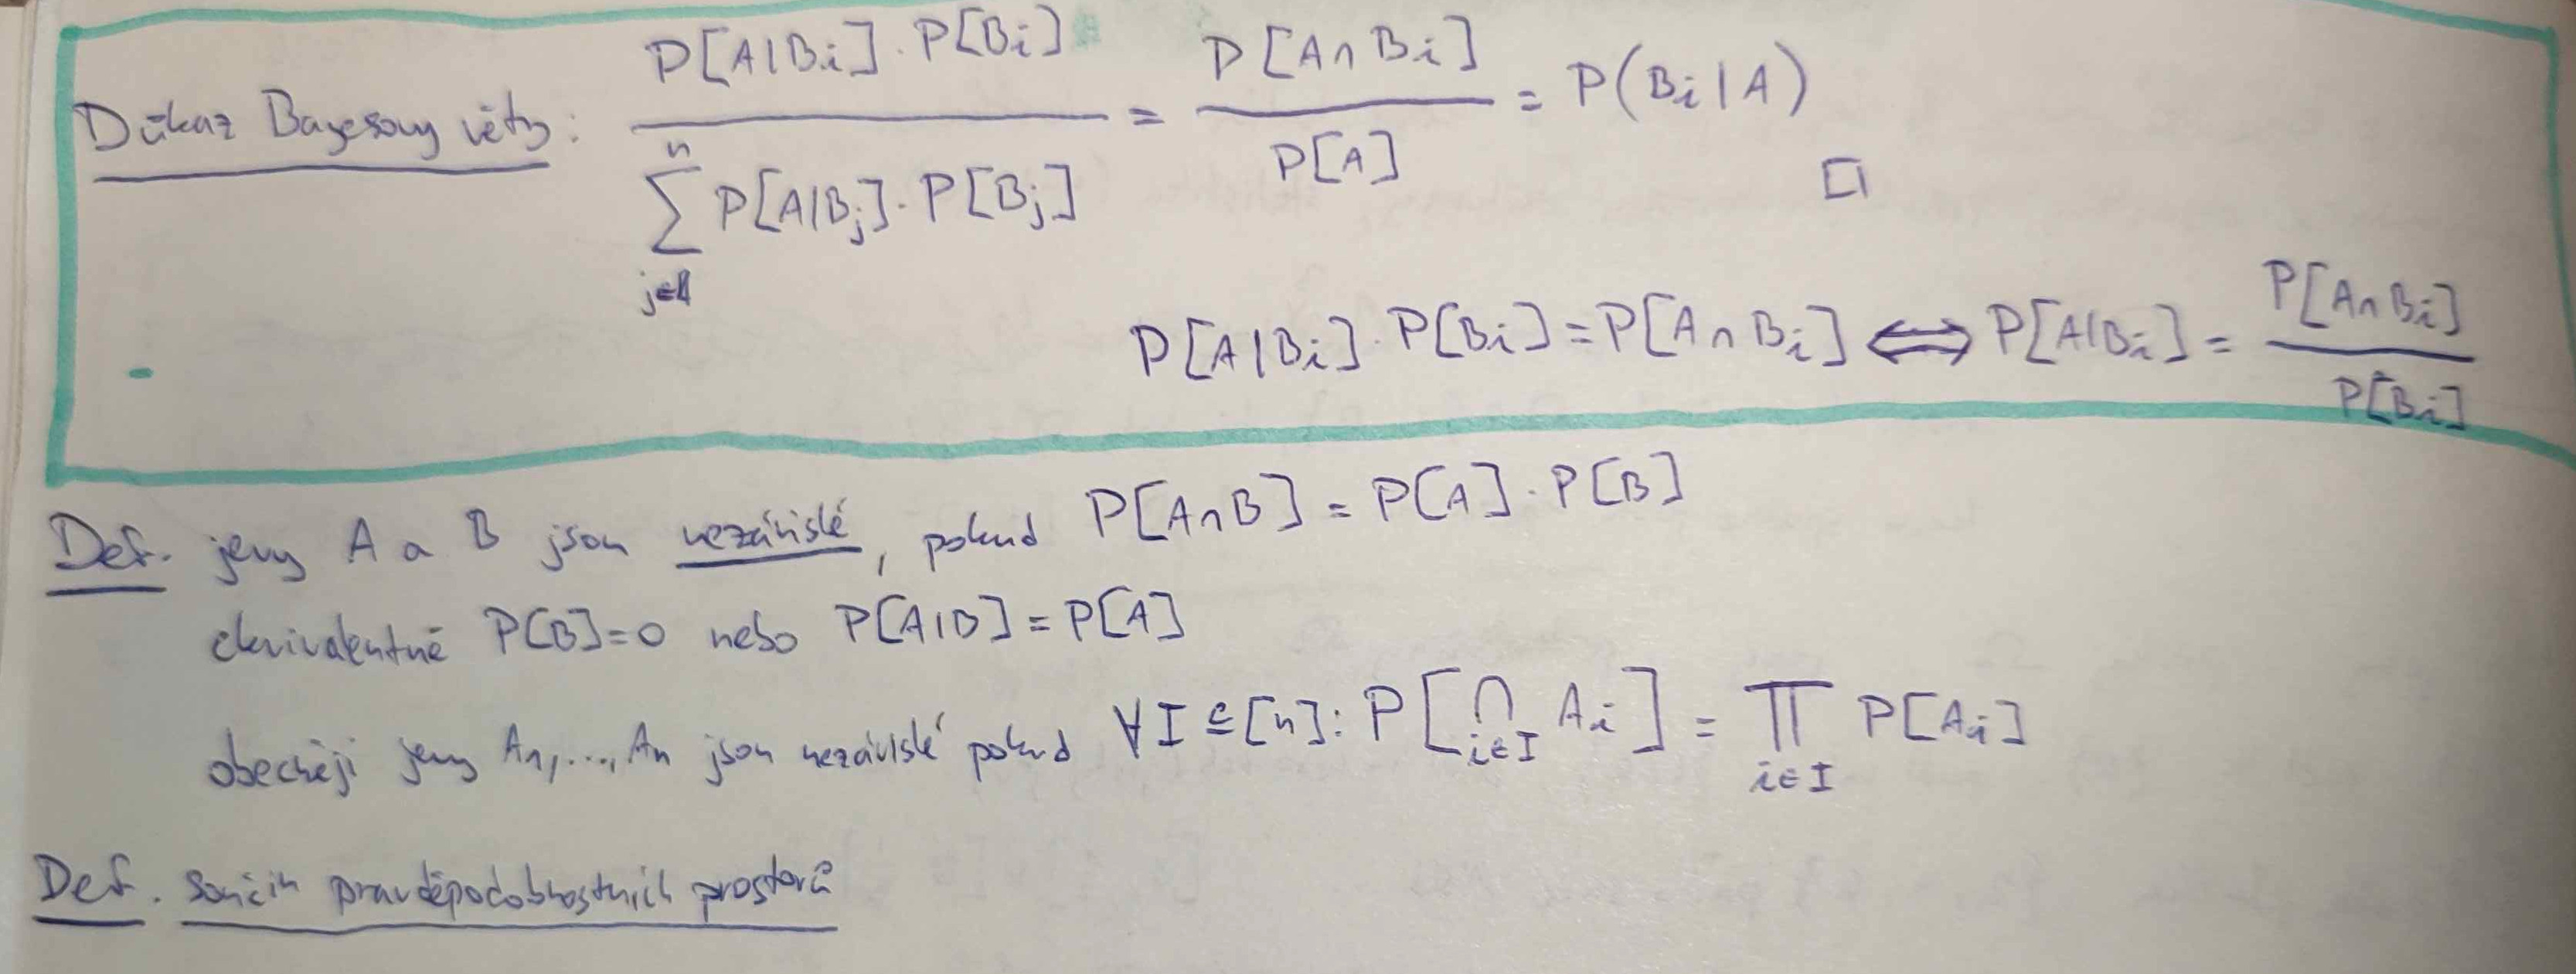 Důkaz Bayesovy věty: P[A|Bi] · P[Bi] / ∑_{j=1}^{n} P[A|Bj] · P[Bj] = P[A∩Bi] / P[A] = P(Bi|A) □
P[A|Bi] · P[Bi] = P[A∩Bi] ⟺ P[A|Bi] = P[A∩Bi] / P[Bi]
Def. jevy A a B jsou nezávislé, pokud P[A∩B] = P[A] · P[B]
ekvivalentně P[B]=0 nebo P[A|B] = P[A]
obecněji jevy A1,...,An jsou nezávislé pokud ∀I⊆[n]: P[⋂_{i∈I} Ai] = ∏_{i∈I} P[Ai]
Def. součin pravděpodobnostních prostorů